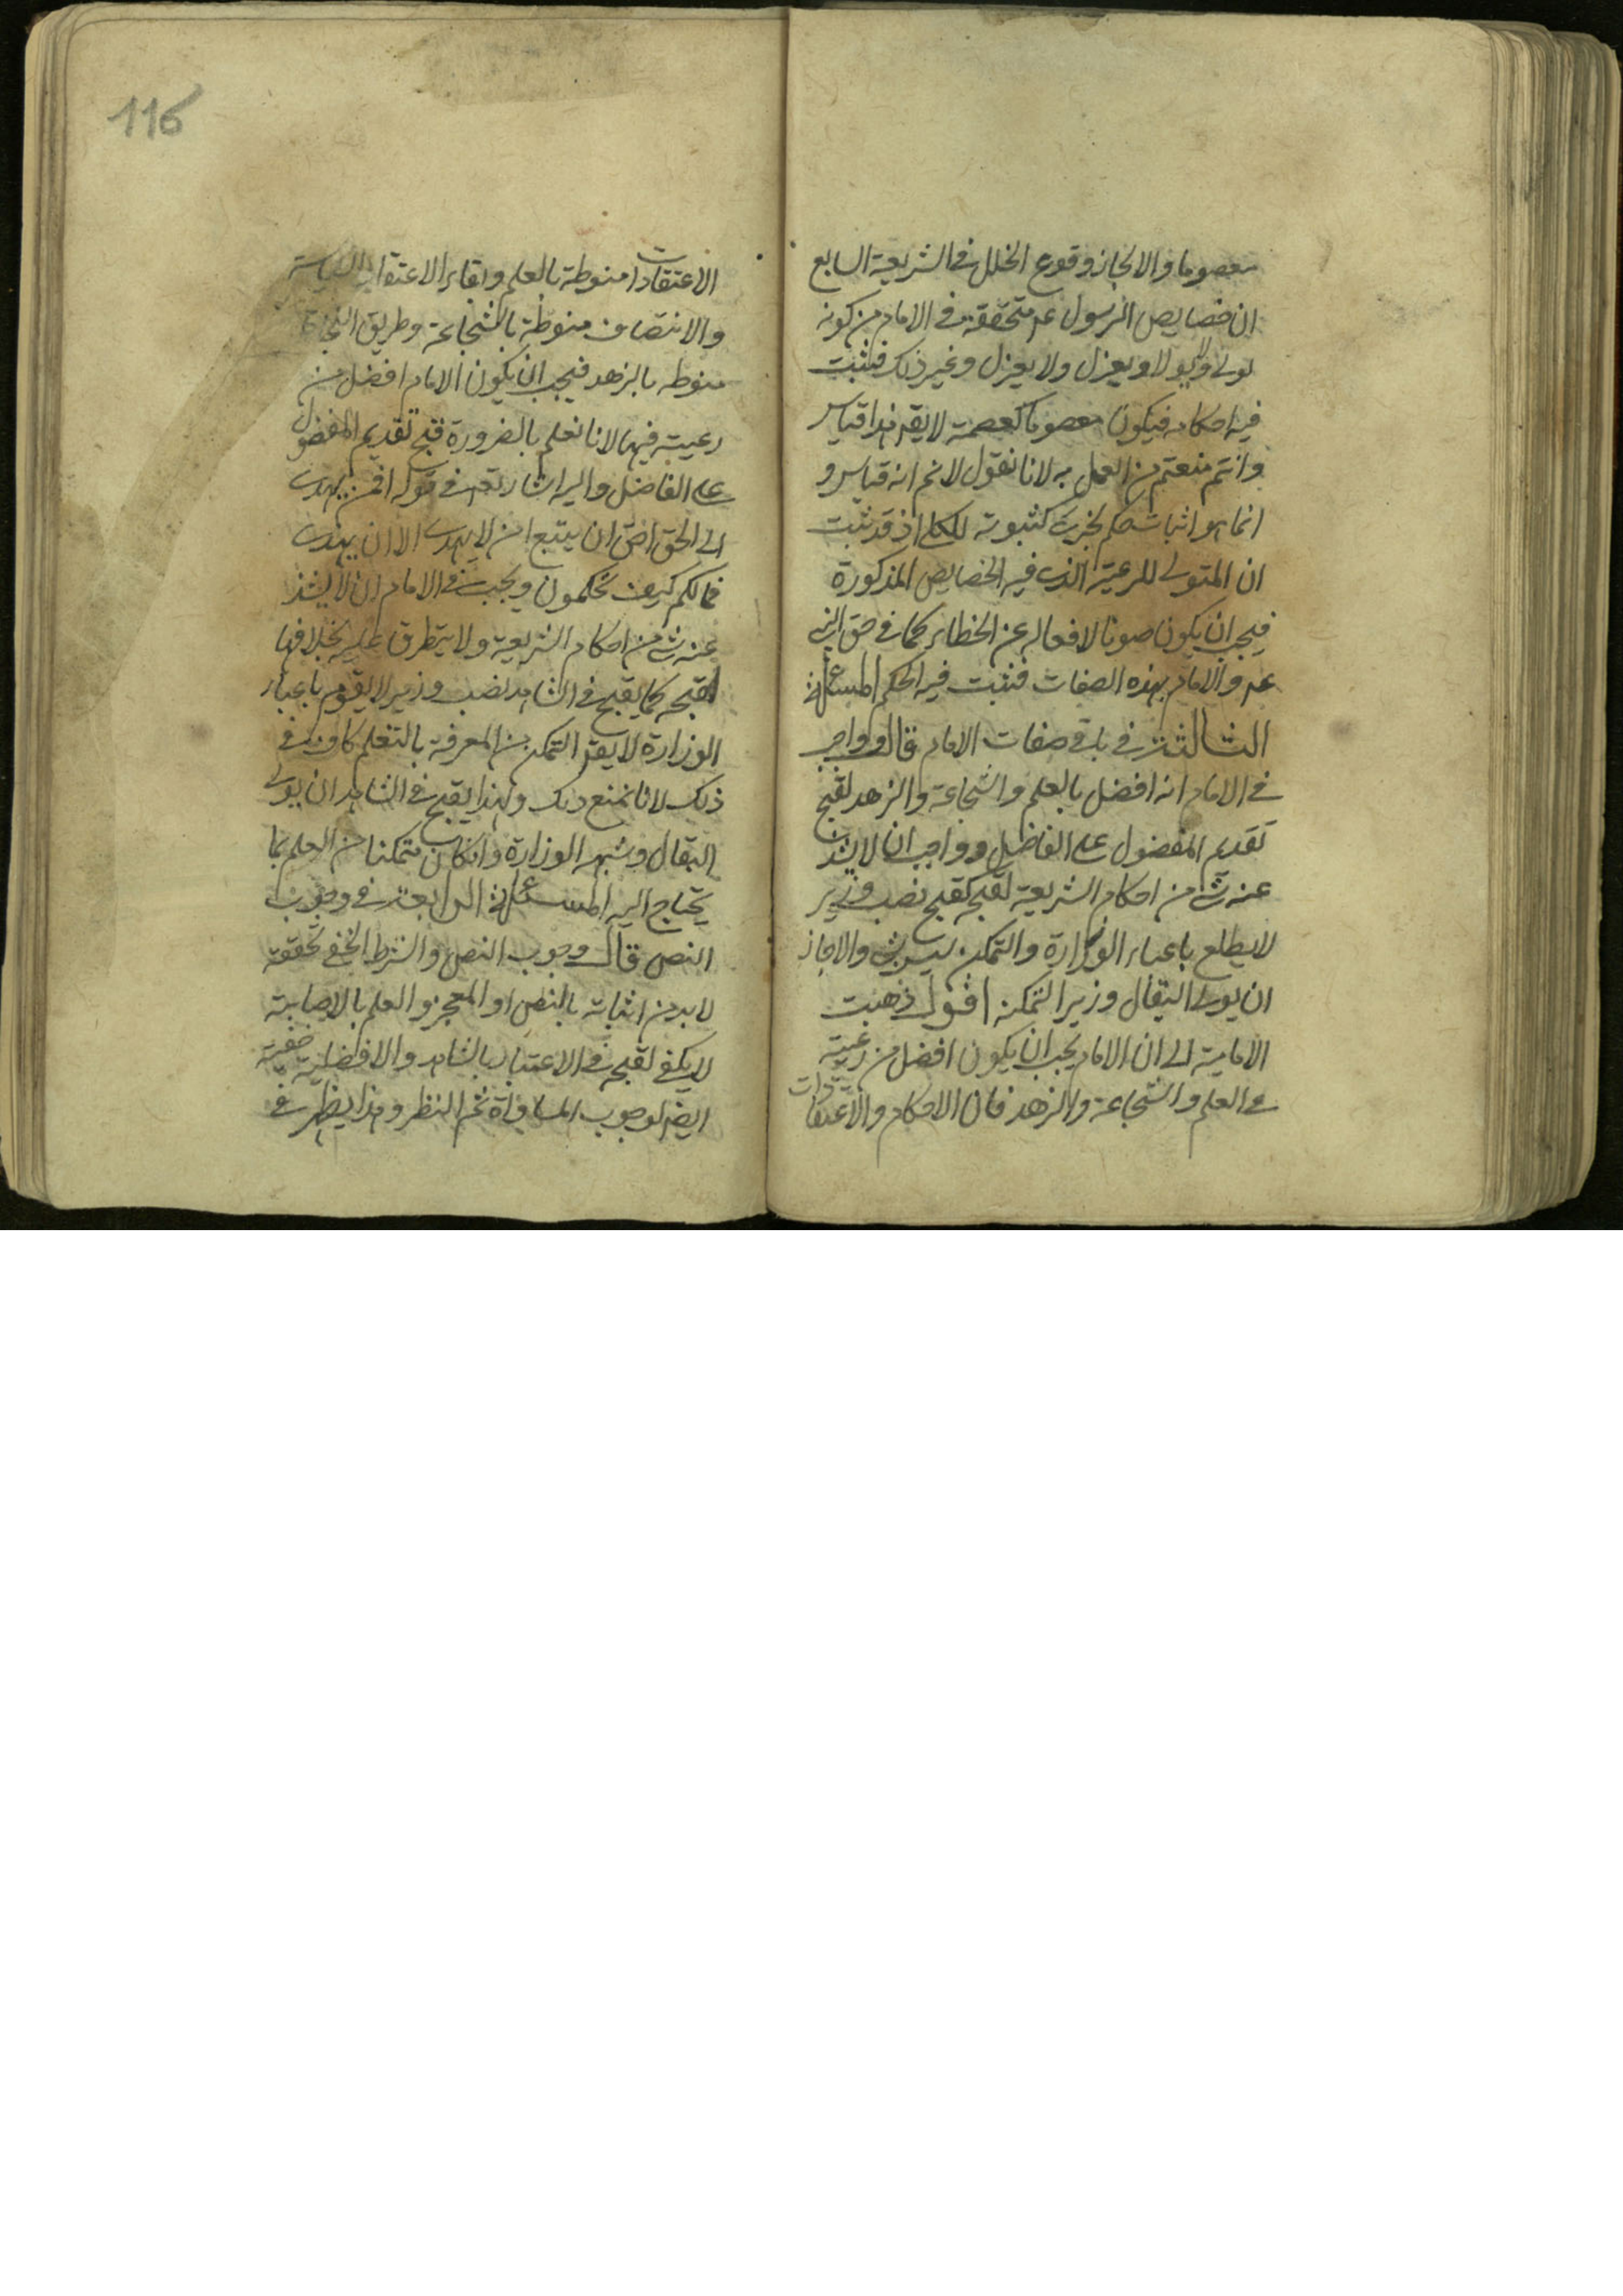 معصوما والا لجاز وقوع الخلل في الشريعة السابع
ان خصايص الرسول عم متحققة في الامام من كونه
يولي ولا يولا ويعزل ولا يعزل وغير ذلك فيثبت
فيه احكامه فيكون معصوما كعصمة لا يقم هذا قياس
وانتم منعتم من العمل به لانا نقول لانم انه قياس و
انما هو اثبات حكم لجزئي كثبوته للكلي اذ قد ثبت
ان المتولي للرعية الذي فيه الخصايص المذكورة
فيجب ان يكون صونا لافعاله عن الخطاء كما في حق النبي
عم والامام بهذه الصفات فثبت فيه الحكم المسئلة
الثالثة في باقي صفات الامام قال وواجب
في الامام انه افضل بالعلم والشجاعة والزهد لقبح
تقديم المفضول على الفاضل وواجب ان لا يشذ
عنه شئ من احكام الشريعة لقبحه كقبح نصب وزير
لا يطلع باعباء الوزارة والتمكن ليس بشئ والا جاز
ان يولي البقال وزيرا لتمكنه اقول ذهبت
الامامية الى ان الامام يجب ان يكون افضل من رعيته
في العلم والشجاعة والزهد فان الاحكام والاعتقادات
116
الاعتقادات منوطة بالعلم وبقاير الاعتقاد السياسة
والانتصاف منوطة بالشجاعة وطريق النجاة
منوطه بالزهد فيجب ان يكون الامام افضل من
رعيته فيها لانا نعلم بالضرورة قبح تقديم المفضول
على الفاضل واليه اشار تعم في قوله افمن يهدي
الى الحق احق ان يتبع امن لا يهدي الا ان يهدي
فمالكم كيف تحكمون ويجب في الامام ان لا يشذ
عنه شئ من احكام الشريعة ولا يتطرق عليه بخلافها
لقبحه كما يقبح في الشاهد نصب وزير لا يقوم باعباء
الوزارة لا يقم التمكن من المعرفة بالتعلم كاف في
ذلك لانا نمنع ذلك ولهذا يقبح في الشاهد ان يولي
البقال وشبهه الوزارة وان كان متمكنا من العلم بما
يحتاج اليه المسئلة الرابعة في وجوب
النص قال وجوب النص والشرط الخفي تحققه
لابد من اثباته بالنص او المعجز والعلم بالاصابة
لا يكفي لقبحه في الاعتبار بالشاهد والافضلية خفية
ايضا لوجوب المساواة ثم النظر وهذا يظهر في